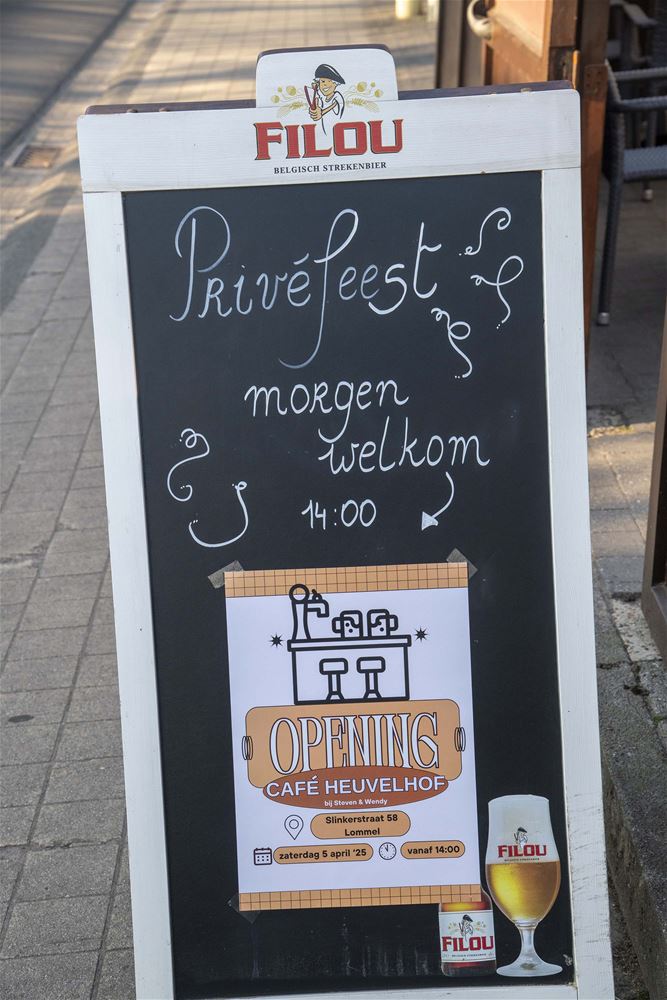 FILOU
BELGISCH STREKENBIER
Privéfeest
morgen
welkom
14:00
OPENING
CAFÉ HEUVELHOF
bij Steven & Wendy
Slinkerstraat 58
Lommel
zaterdag 5 april '25
vanaf 14:00
FILOU
BELGISCH STREKENBIER
FILOU
BELGISCH STREKENBIER